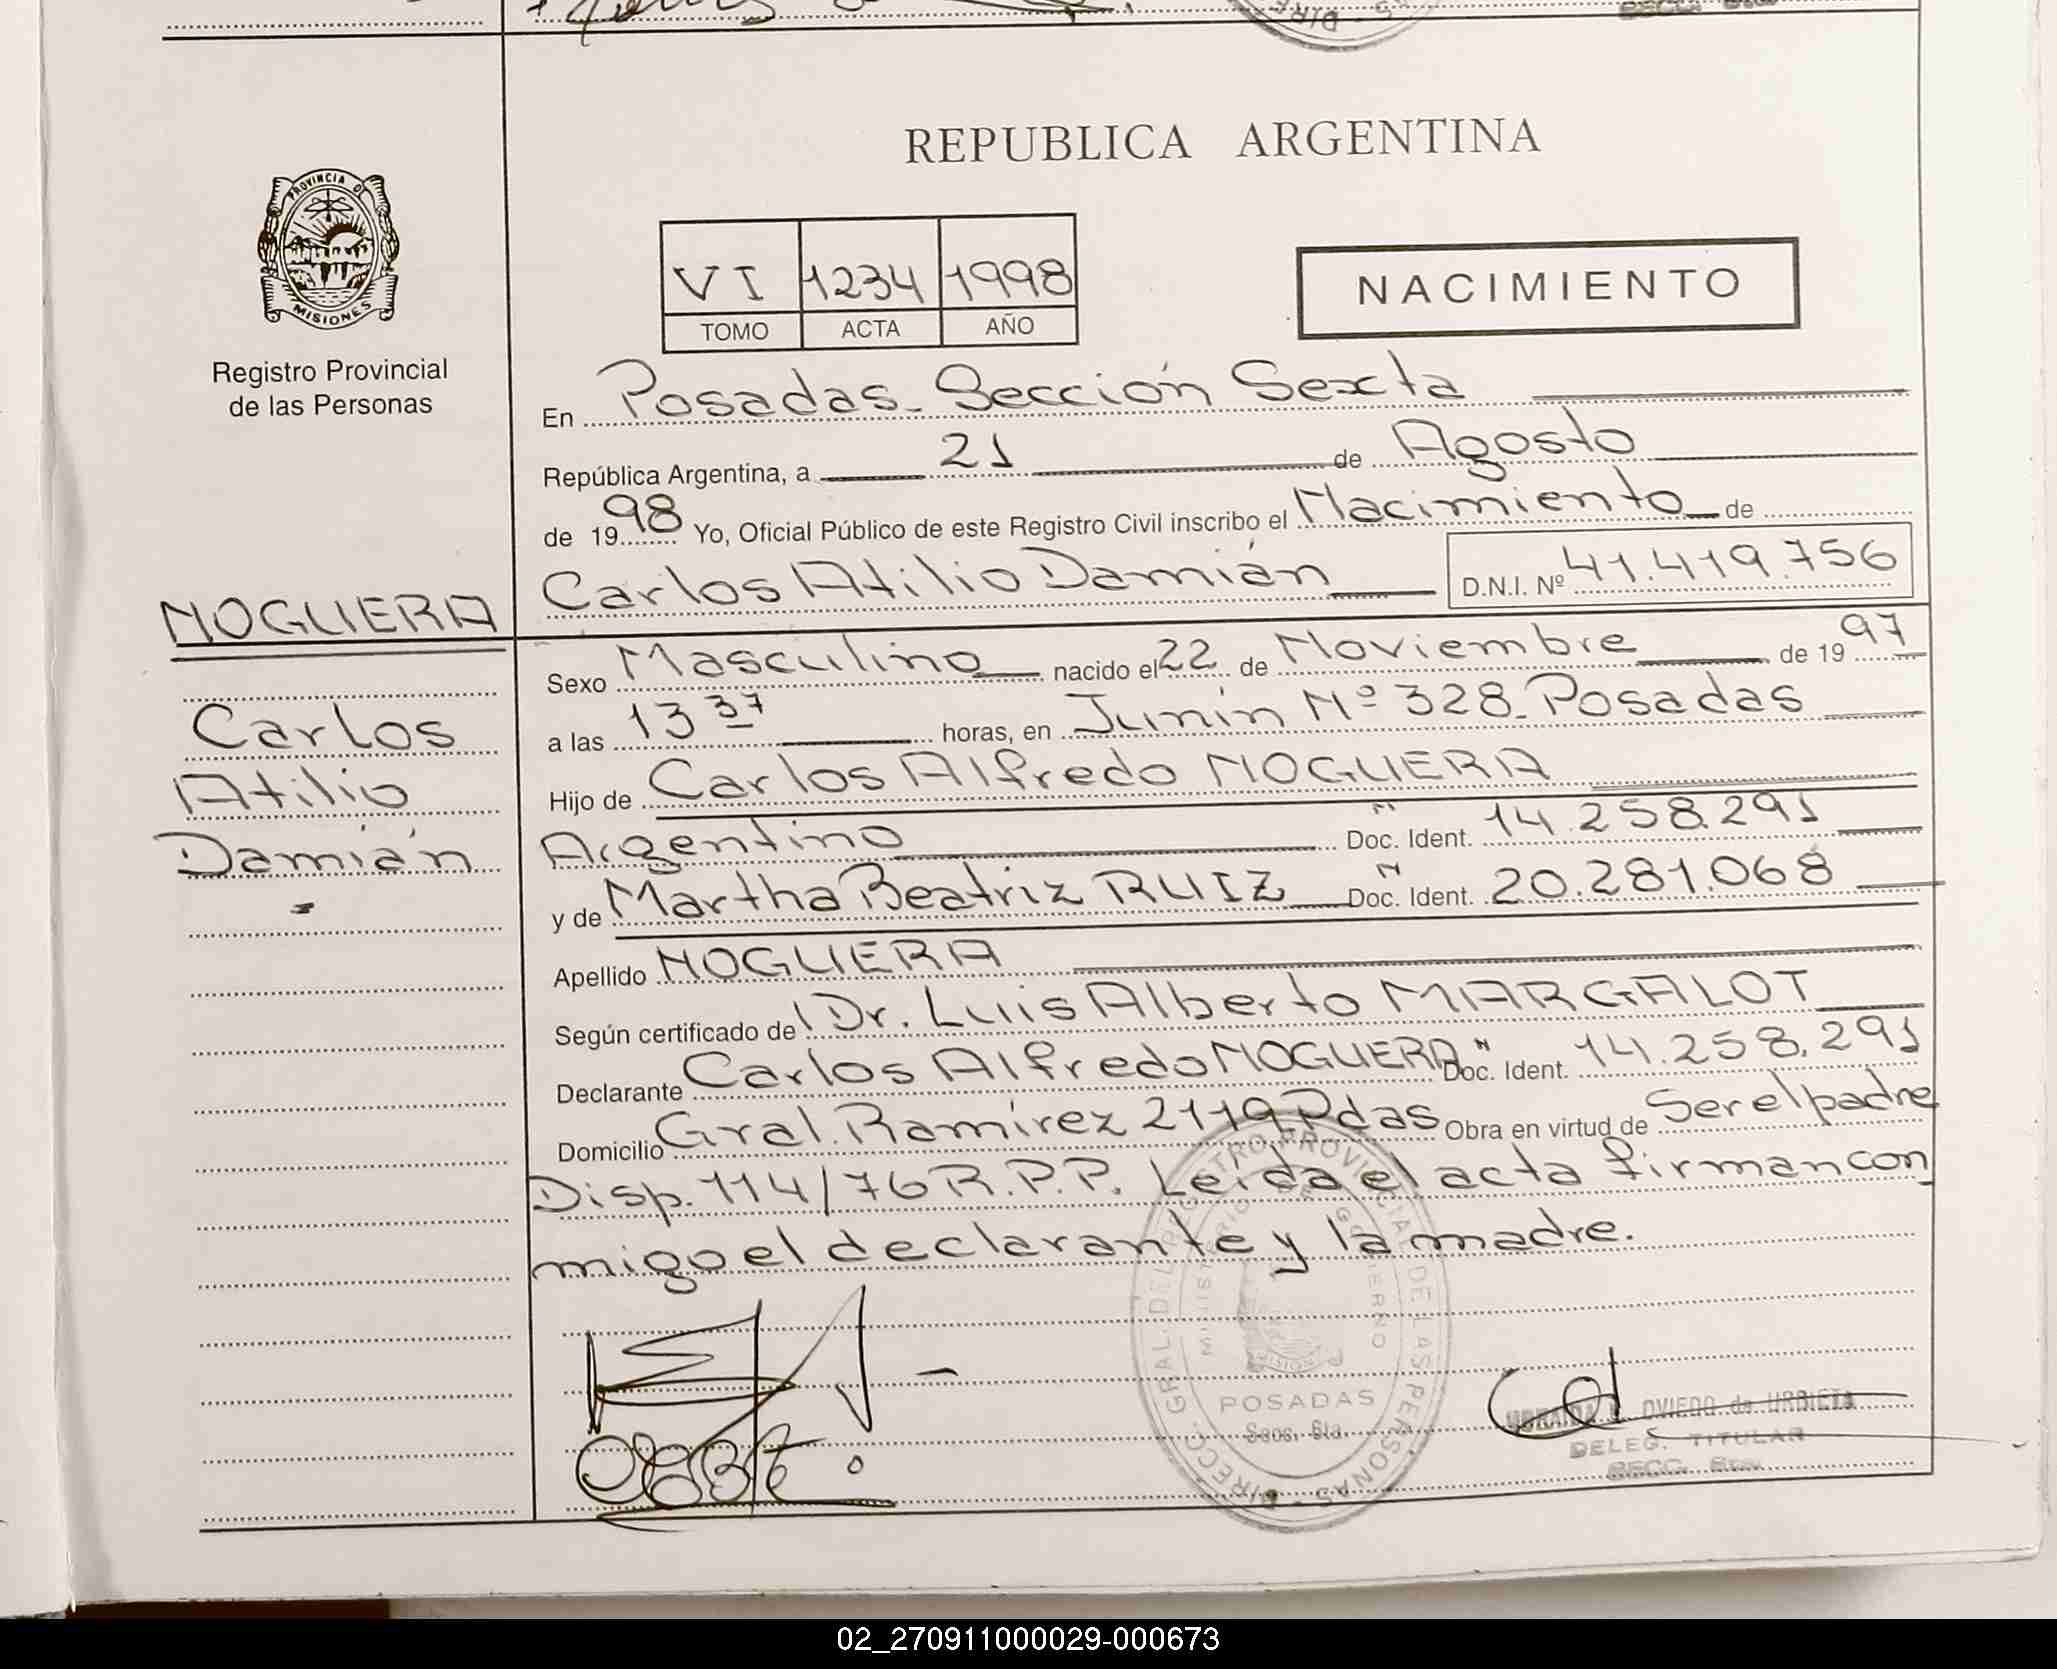 REPUBLICA ARGENTINA
PROVINCIA DE
MISIONES
Registro Provincial
de las Personas
VI 1234 1998
TOMO ACTA AÑO
NACIMIENTO
En Posadas - Sección Sexta
República Argentina, a 21 de Agosto
de 1998 Yo, Oficial Público de este Registro Civil inscribo el Nacimiento de
Carlos Atilio Damián D.N.I. Nº 41.419.756
NOGUERA
Carlos
Atilio
Damián
Sexo Masculino nacido el 22 de Noviembre de 1997
a las 13 37 horas, en Junín Nº 328 - Posadas
Hijo de Carlos Alfredo NOGUERA
Argentino Doc. Ident. 14.258.291
y de Martha Beatriz RUIZ Doc. Ident. 20.281.068
Apellido NOGUERA
Según certificado de Dr. Luis Alberto MARGALOT
Declarante Carlos Alfredo NOGUERA Doc. Ident. 14.258.291
Domicilio Gral. Ramírez 2119 Pdas Obra en virtud de Ser el padre
Disp. 114/76 R.P.P. Leída el acta firman con
migo el declarante y la madre.
DIRECC. GRAL. DEL REGISTRO PROVINCIAL DE LAS PERSONAS
MINISTERIO DE GOBIERNO
POSADAS
Secc. 6ta.
OVIEDO de URBIETA
DELEG. TITULAR
SECC. 6ta.
02_270911000029-000673